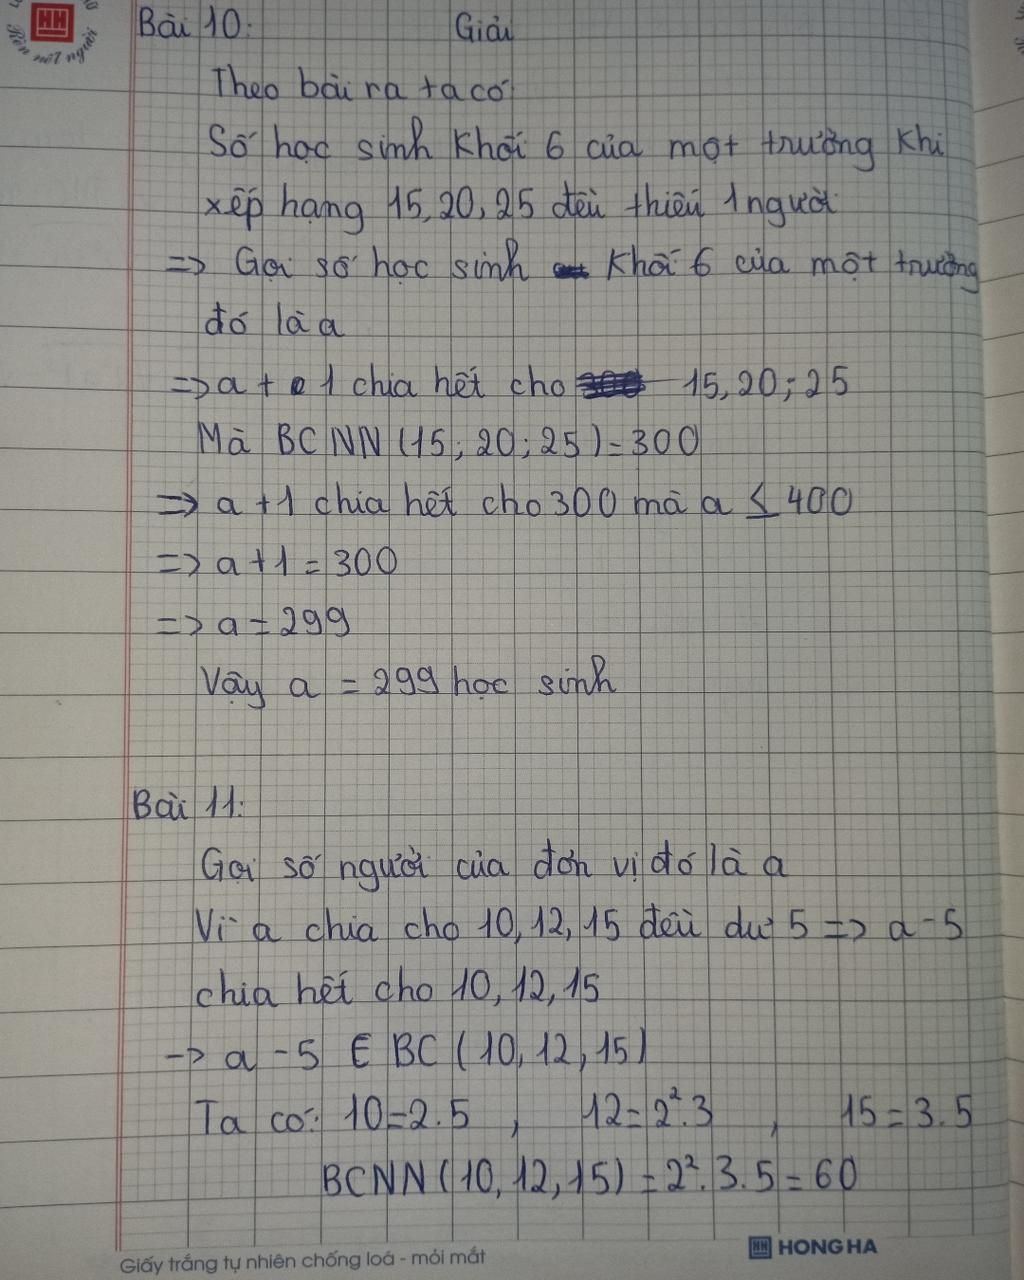 Rèn nét người
Bài 10: Giải
Theo bài ra ta có
Số học sinh Khối 6 của một trường Khi
xếp hạng 15, 20, 25 đều thiếu 1 người
=> Gọi số học sinh Khối 6 của một trường
đó là a
=> a + 1 chia hết cho 15, 20; 25
Mà BCNN (15; 20; 25) = 300
=> a + 1 chia hết cho 300 mà a ≤ 400
=> a + 1 = 300
=> a = 299
Vậy a = 299 học sinh
Bài 11:
Gọi số người của đơn vị đó là a
Vì a chia cho 10, 12, 15 đều dư 5 => a - 5
chia hết cho 10, 12, 15
-> a - 5 ∈ BC (10, 12, 15)
Ta có: 10 = 2.5 , 12 = 2².3 , 15 = 3.5
BCNN (10, 12, 15) = 2².3.5 = 60
Giấy trắng tự nhiên chống loá - mỏi mắt
HONG HA